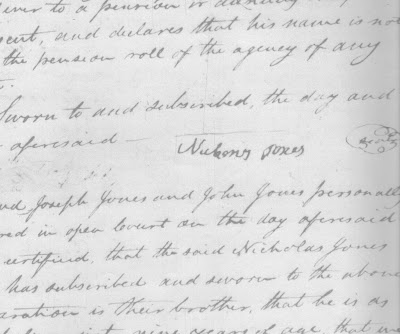 ever to a pension or
sent, and declares that his name is not
the pension roll of the agency of any
Sworn to and subscribed, the day and
aforesaid —
Jones
nd Joseph Jones and John Jones personally
red in open Court on the day aforesaid
certified, that the said Nicholas Jones
has subscribed and sworn to the above
aration is their brother, that he is as
nine years of age, that